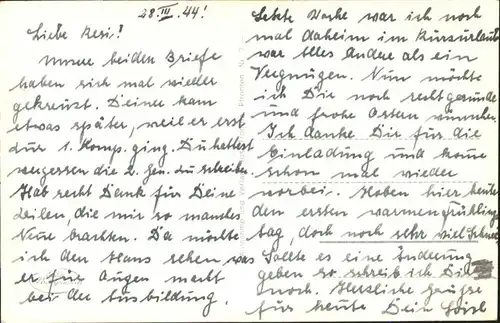 28. III. 44!
Liebe Resi!
Unsre beiden Briefe
haben sich mal wieder
gekreuzt. Deiner kam
etwas später, weil er erst
zur 1. Komp. ging. Du hattest
vergessen die 2. Gen. zu schreiben.
Hab recht Dank für Deine
Zeilen, die mir so manches
Neue brachten. Da möchte
ich den Hans sehen, was
er für Augen macht
bei der Ausbildung.
Letzte Woche war ich noch
mal daheim im Kurzurlaub
war Alles Andere als ein
Vergnügen. Nun möchte
ich Dir noch recht gesunde
und frohe Ostern wünschen.
Ich danke Dir für die
Einladung und komme
schon mal wieder
vorbei. Haben hier heute
den ersten warmen Frühling
tag, doch noch sehr viel Schnee
Sollte es eine Änderung
geben so schreib ich Dir
noch. Herzliche Grüße
für heute Dein